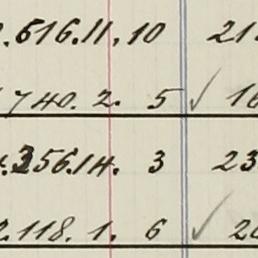 .616.11.10 21.
740.2. 5 ✓ 16
.356.14. 3 23
2.118.1. 6 ✓ 20